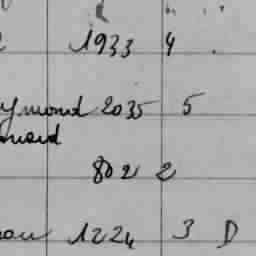 1933 4
ymond 2035 5
802 2
1224 3 D